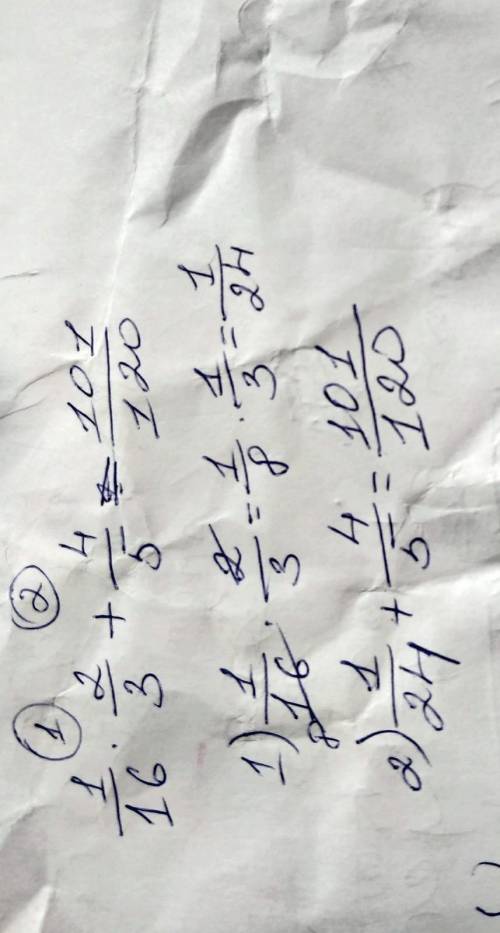 ① ②
1/16 · 2/3 + 4/5 = 101/120
1) 1/16 8 · 2/3 = 1/8 · 1/3 = 1/24
2) 1/24 + 4/5 = 101/120